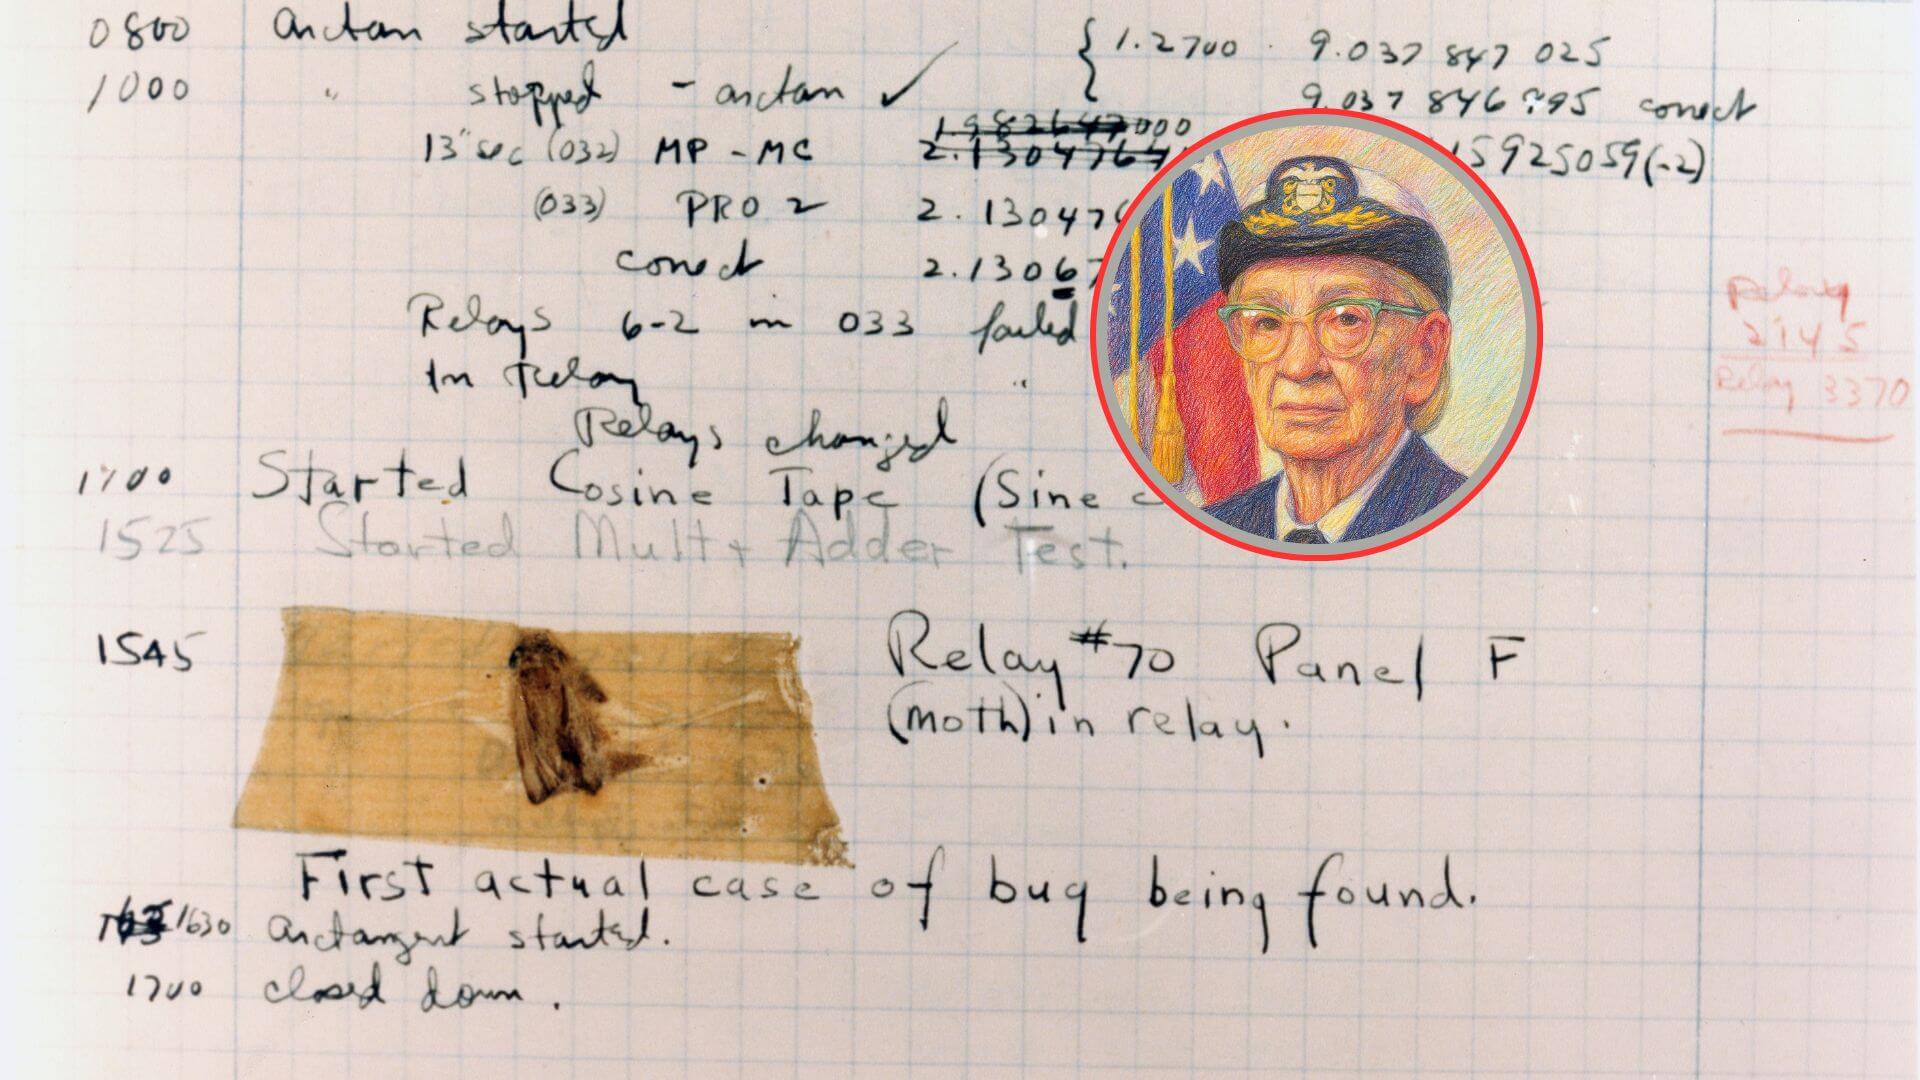 0800 arctan started
{ 1.2700 9.037 847 025
1000 " stopped - arctan ✓ 9.037 846 995 conect
13" sec (032) MP - MC 1.982647000
2.130476 15925059(-2)
(033) PRO 2 2.130476
conect 2.1306
Relays 6-2 in 033 failed
In Relay "
Relays changed
Relay
2145
Relay 3370
1700 Started Cosine Tape (Sine
1525 Started Mult+ Adder Test.
1545 Relay #70 Panel F
(moth) in relay.
First actual case of bug being found.
1630 arctangent started.
1700 closed down.